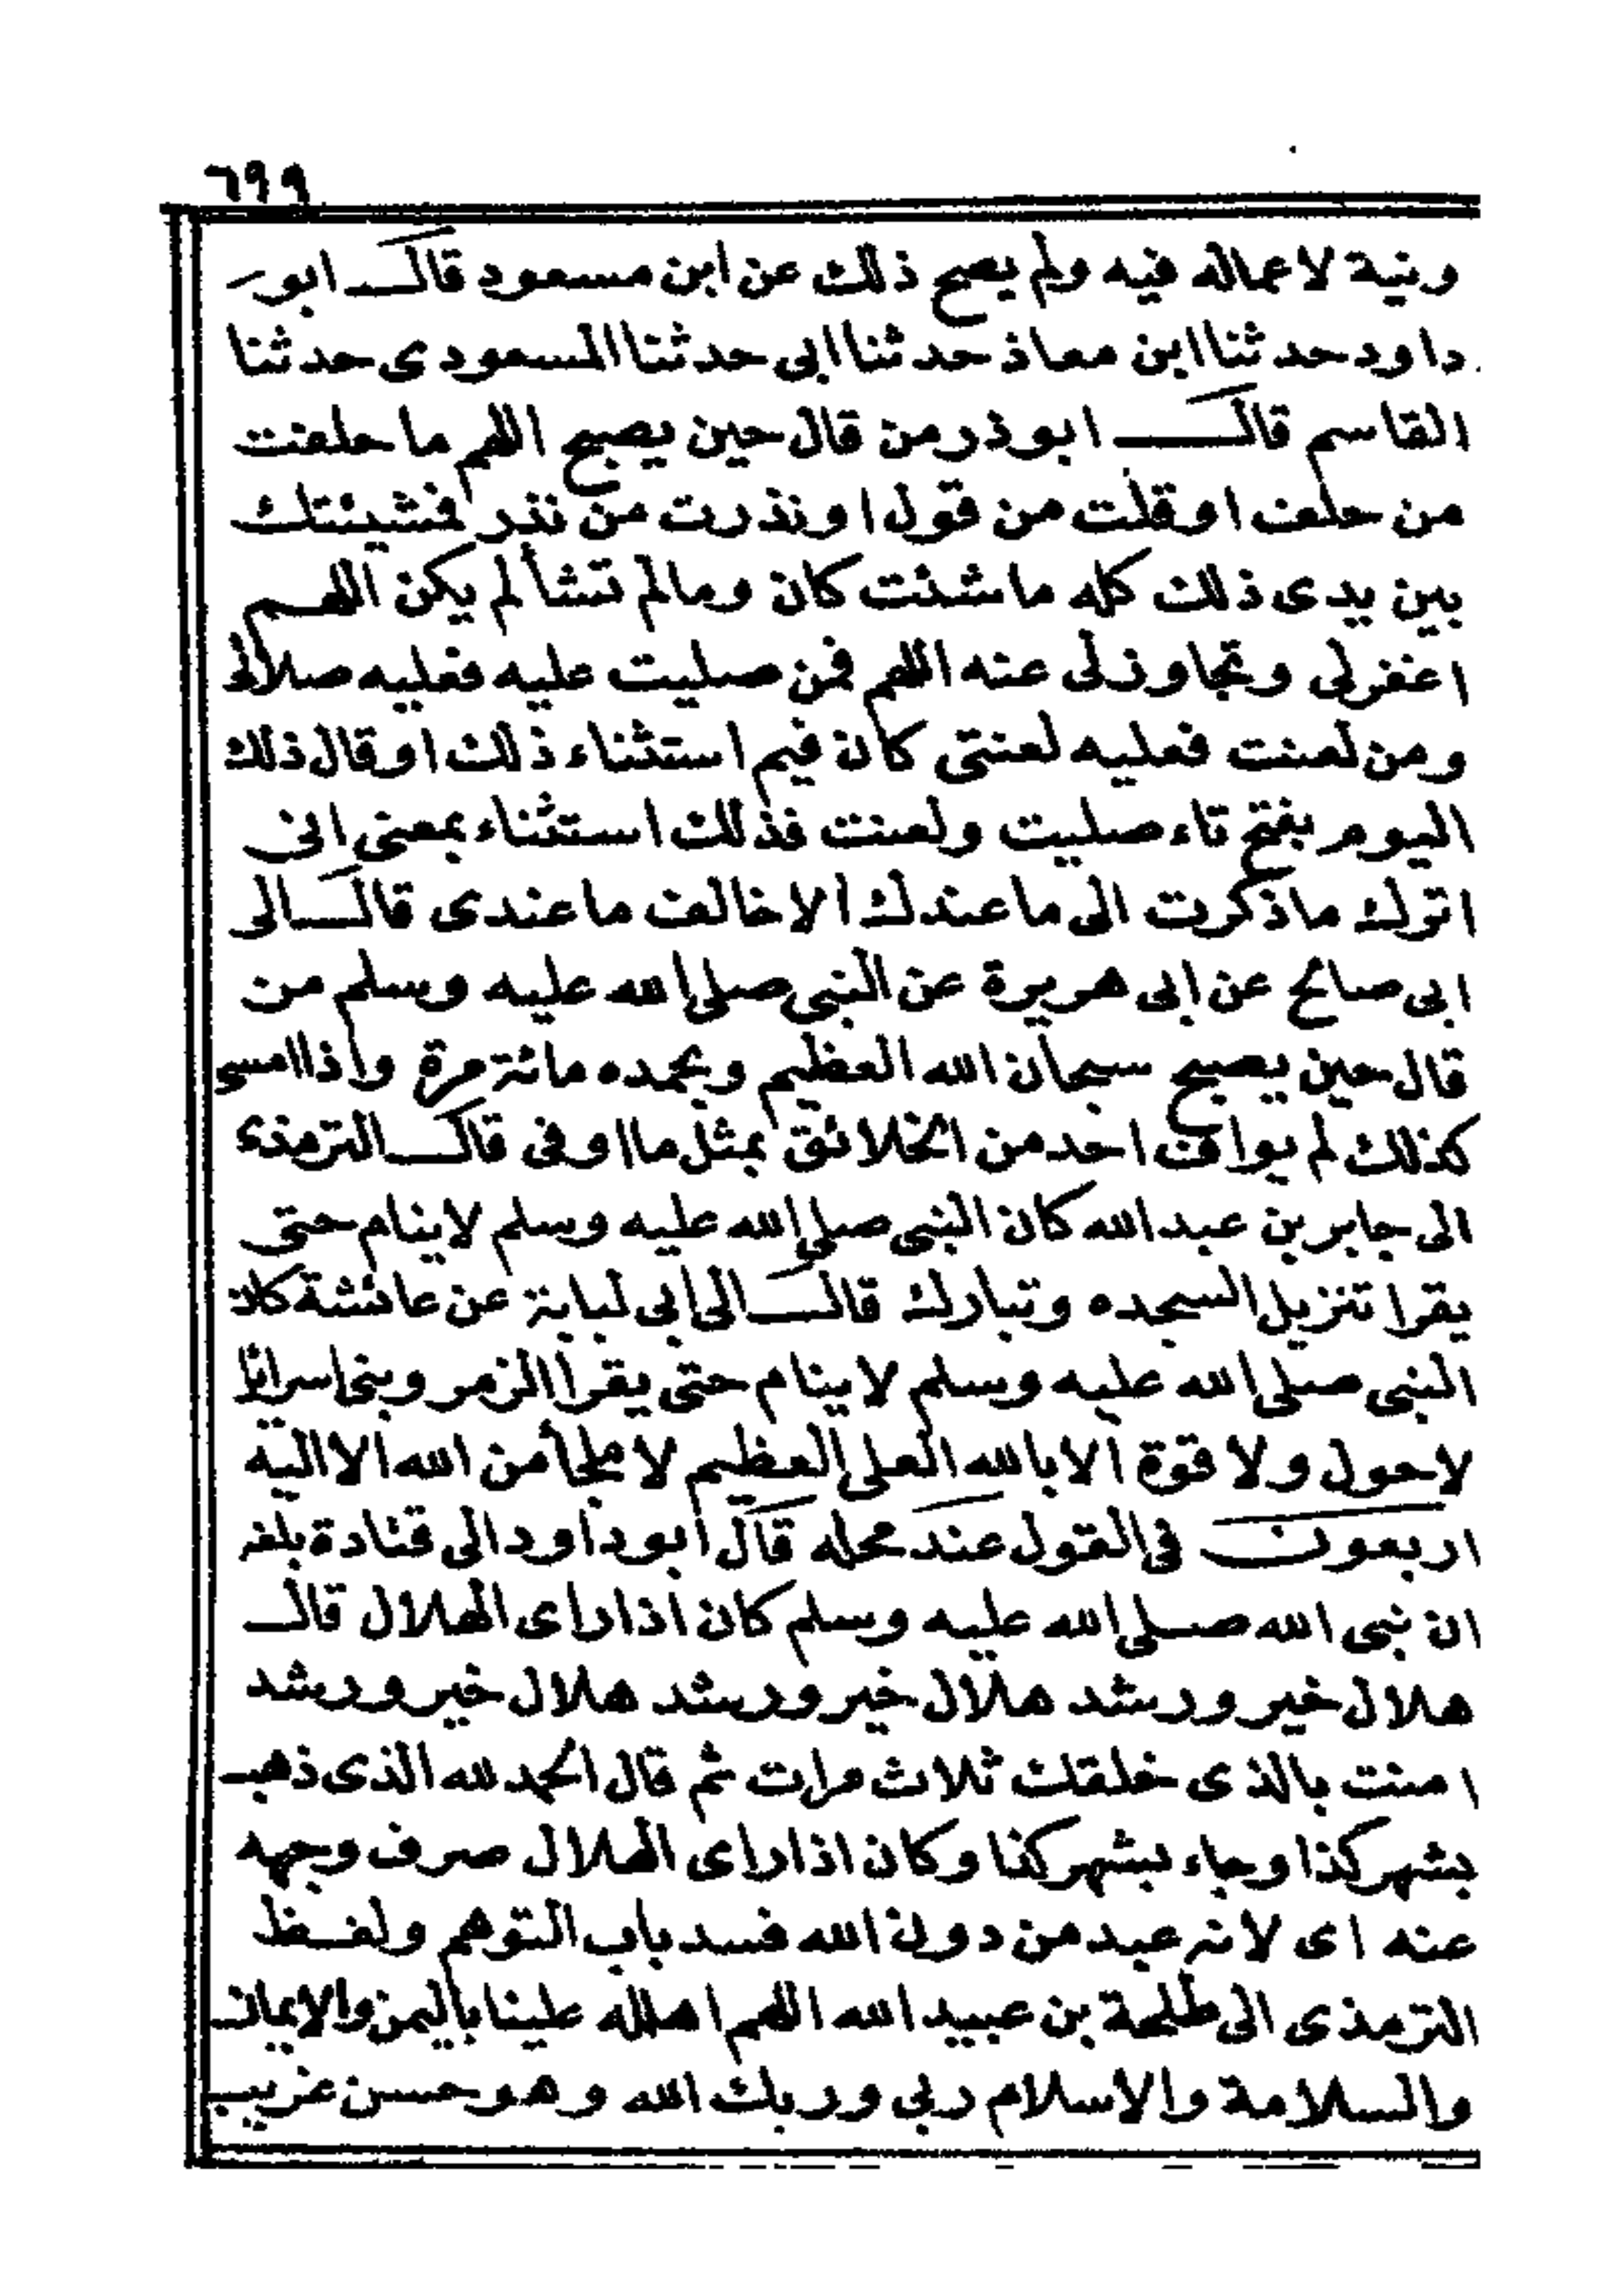 ٦٩٩
ونية لاعماله فيه ولم يصح ذلك عن ابن مسعود قال ابو
داود حدثنا ابن معاذ حدثنا ابى حدثنا المسعودى حدثنا
القاسم قال ابوذر من قال حين يصبح اللهم ما حلفت
من حلف او قلت من قول او نذرت من نذر فمشيئتك
بين يدى ذلك كله ما شئت كان وما لم تشأ لم يكن اللهم
اغفرلى وتجاوزلى عنه اللهم فمن صليت عليه فعليه صلاتى
ومن لعنت فعليه لعنتى كان فيم استثناء ذلك او قال ذلك
اليوم بفتح تاء صليت ولعنت فذلك استثناء بمعنى انى
اترك ما ذكرت الى ما عندك الا خالف ما عندى قال الى
ابى صالح عن ابى هريرة عن النبى صلى الله عليه وسلم من
قال حين يصبح سبحان الله العظيم وبحمده مائة مرة واذا امسى
كذلك لم يواف احد من الخلائق بمثل ما اوفى قال الترمذى
الى جابر بن عبد الله كان النبى صلى الله عليه وسلم لا ينام حتى
يقرا تنزيل السجده وتبارك قال الى ابى لبابة عن عائشة كان
النبى صلى الله عليه وسلم لا ينام حتى يقرا الزمر وبنى اسرائل
لا حول ولا قوة الا بالله العلى العظيم لا ملجأ من الله الا اليه
اربعون فى القول عند محله قال ابو داود الى قتادة بلغه
ان نبى الله صلى الله عليه وسلم كان اذا راى الهلال قال
هلال خير ورشد هلال خير ورشد هلال خير ورشد
امنت بالذى خلقك ثلاث مرات ثم قال الحمد لله الذى ذهب
بشهر كذا وجاء بشهر كذا وكان اذا راى الهلال صرف وجهه
عنه اى لانه عبد من دون الله فسد باب التوهم ولفظ
الترمذى الى طلحة بن عبيد الله اللهم اهلله علينا باليمن والايمان
والسلامة والاسلام ربى وربك الله وهو حسن غريب